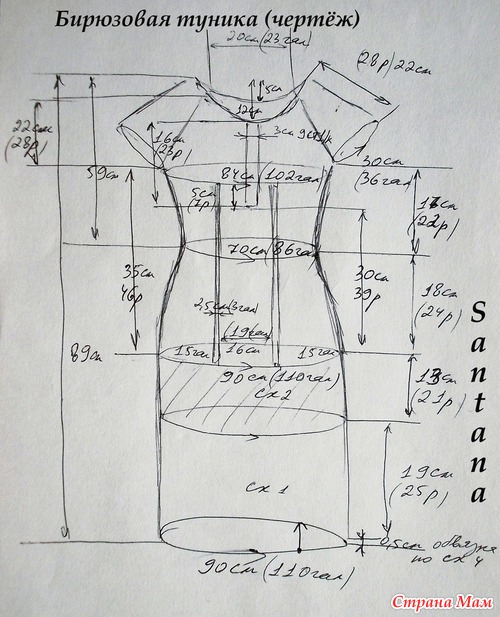 Бирюзовая туника (чертёж)
20см (23гал)
(28р) 22см
5см
22см
(28р)
16см
(23р)
30см
(36гал)
59см
84см (102гал)
5см
(7р)
(22р)
70см (86гал)
35см
46р
30см
39р
18см
(24р)
2,5см (3гал)
16см
15гал
15гал
89см
90см (110гал)
сх 2
13см
(21р)
19см
(25р)
сх 1
0,5см обвязка
по сх 4
90см (110гал)
Santana
Страна Мам